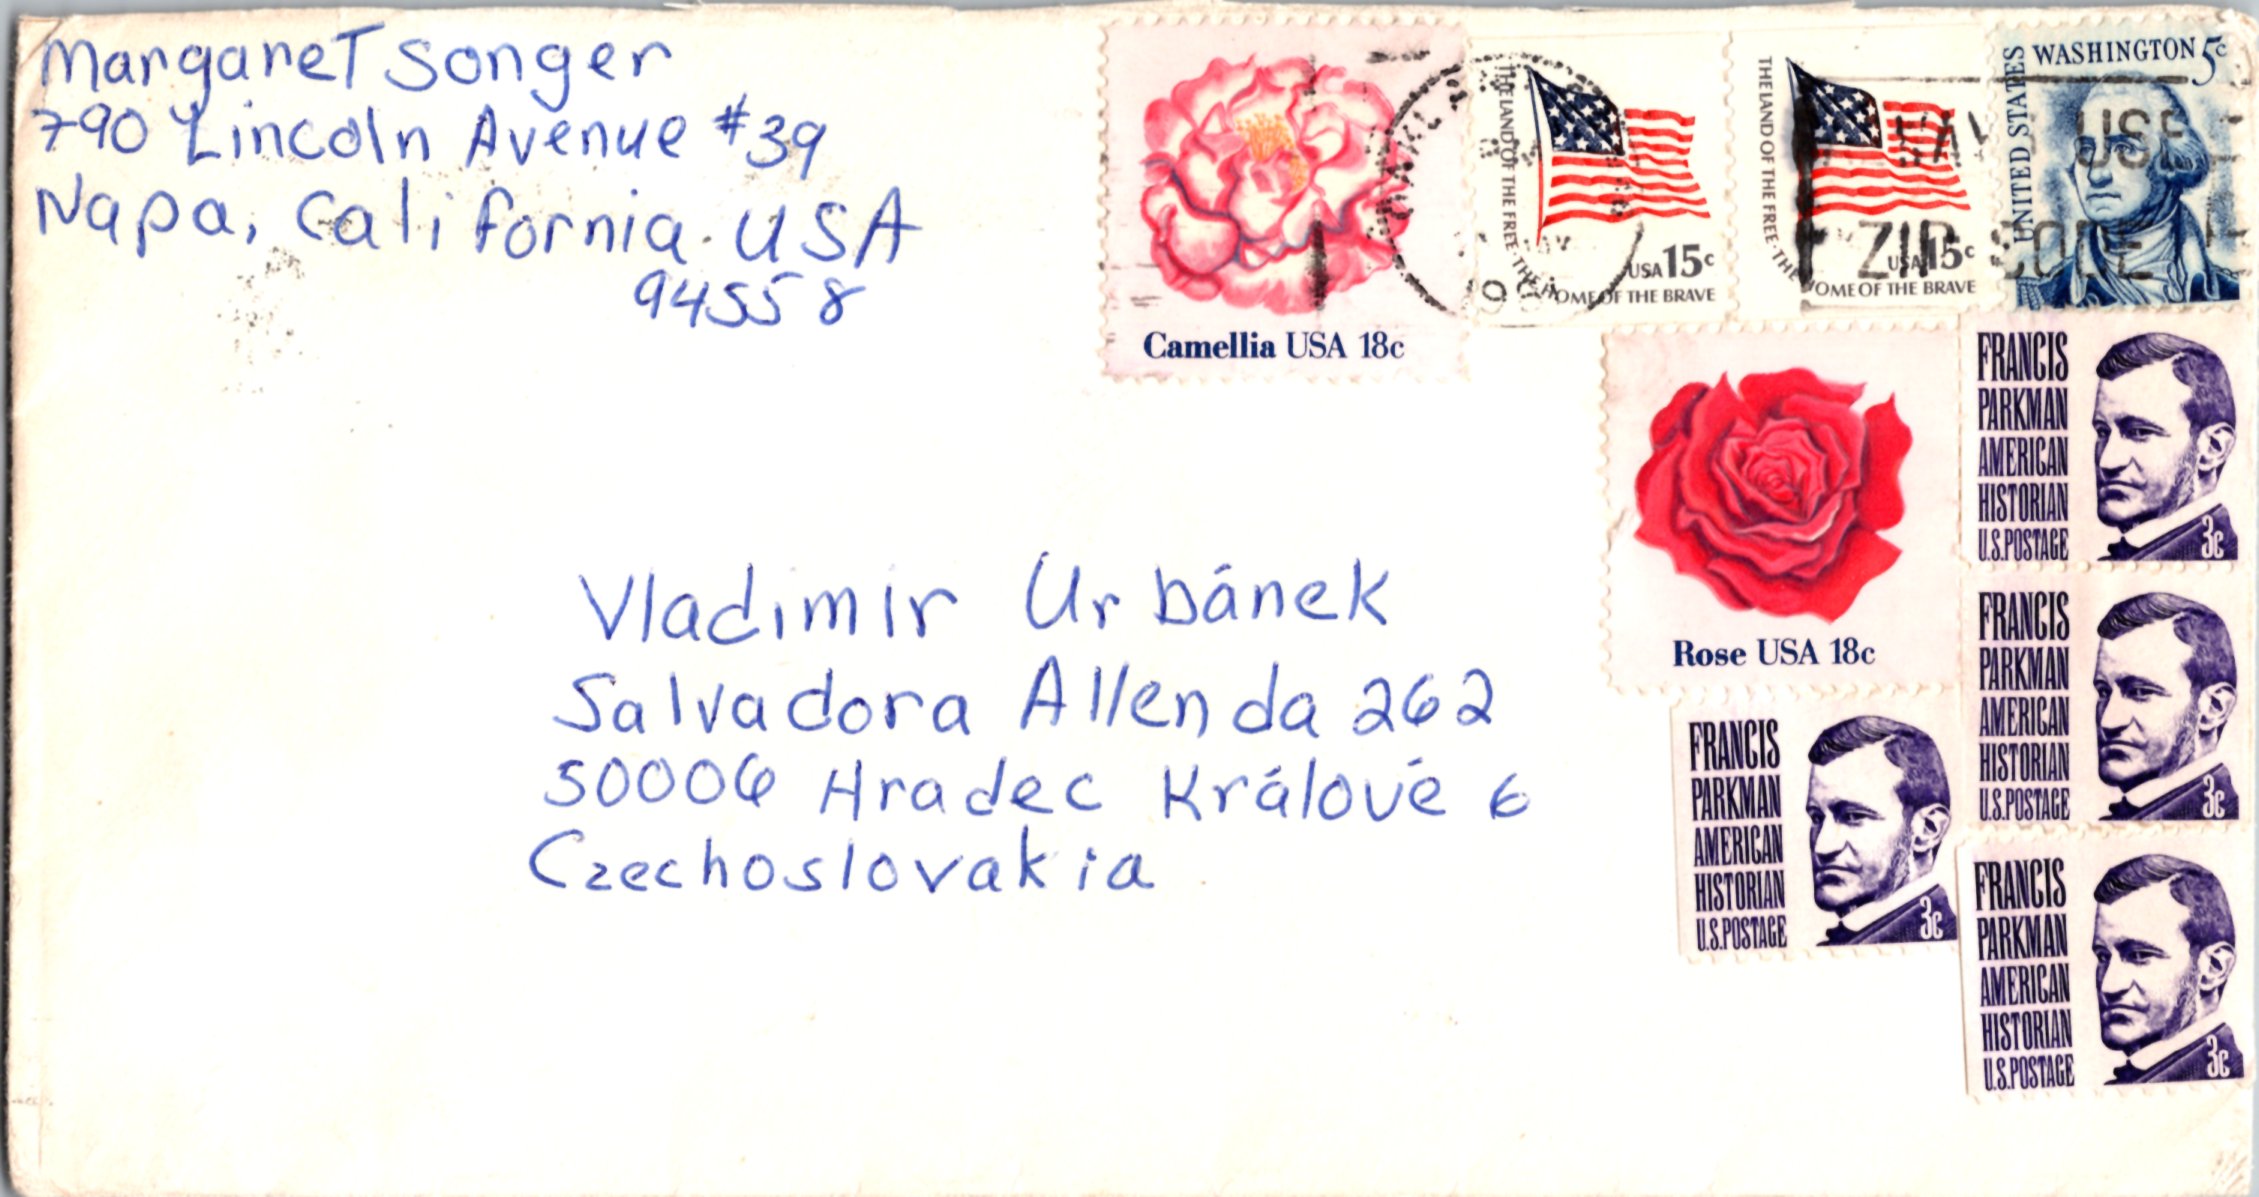 Margaret Songer
790 Lincoln Avenue #39
Napa, California USA
94558
Camellia USA 18c
THE LAND OF THE FREE · THE HOME OF THE BRAVE
USA 15c
THE LAND OF THE FREE · THE HOME OF THE BRAVE
USA 15c
UNITED STATES
WASHINGTON 5c
USE
ZIP CODE
Rose USA 18c
FRANCIS
PARKMAN
AMERICAN
HISTORIAN
U.S.POSTAGE
3c
FRANCIS
PARKMAN
AMERICAN
HISTORIAN
U.S.POSTAGE
3c
FRANCIS
PARKMAN
AMERICAN
HISTORIAN
U.S.POSTAGE
3c
FRANCIS
PARKMAN
AMERICAN
HISTORIAN
U.S.POSTAGE
3c
Vladimir Urbánek
Salvadora Allenda 262
50006 Hradec Králové 6
Czechoslovakia